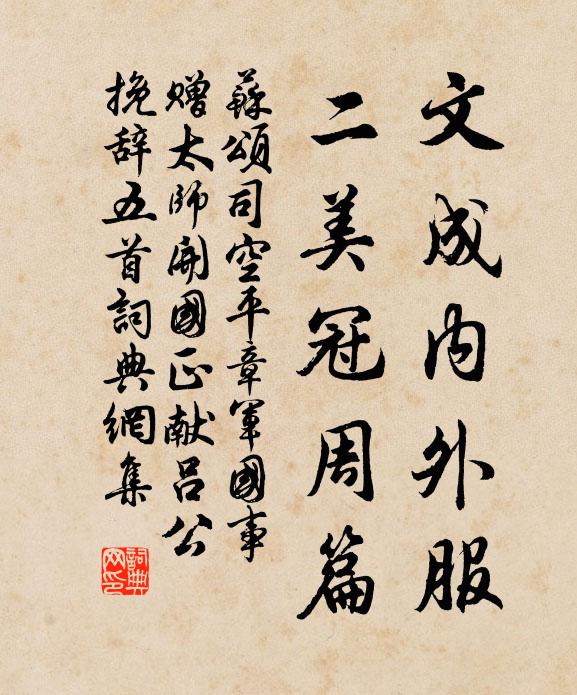 文成内外服
二美冠周篇
蘇頌司空平章軍國事
贈太師開國正献吕公
挽辞五首詞典網集
詞典网印